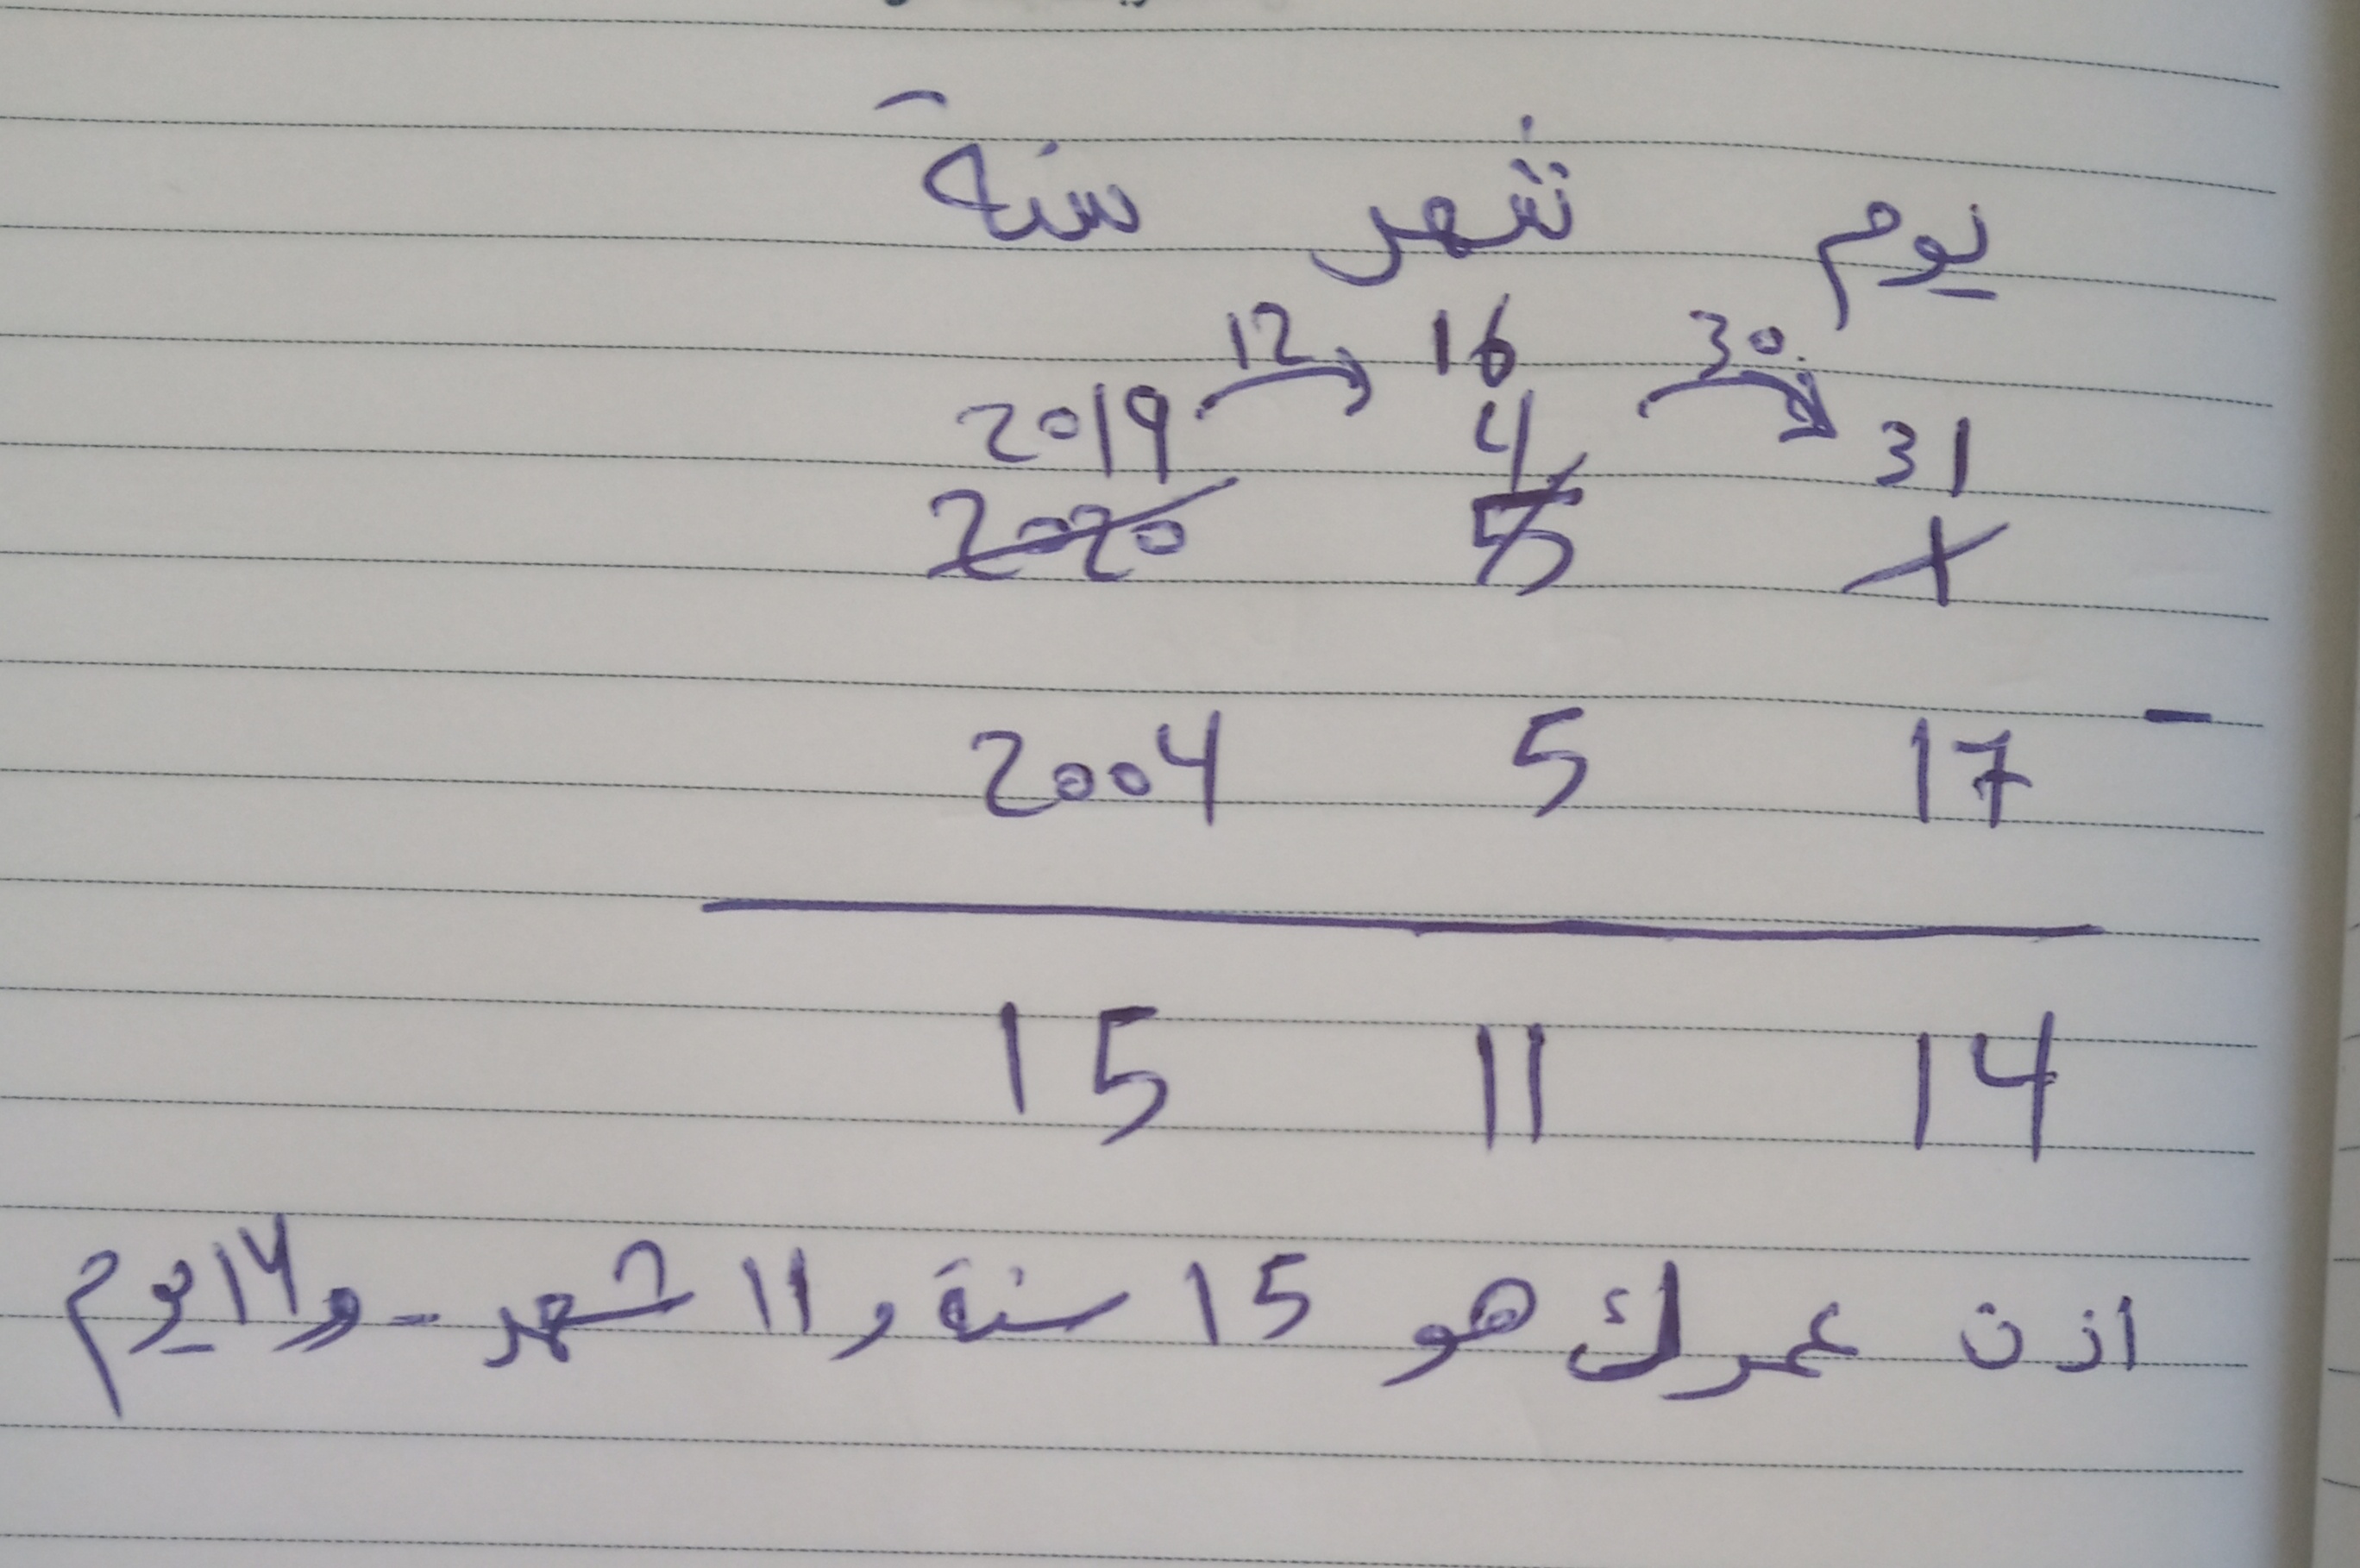 يوم شهر سنة
30 16 12
31 4 2019
1 5 2020
-
17 5 2004
14 11 15
اذن عمرك هو 15 سنة و 11 شهر - و 14 يوم